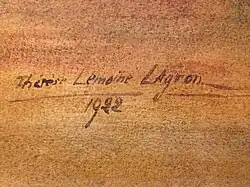 Therese Lemoine Lagron
1922